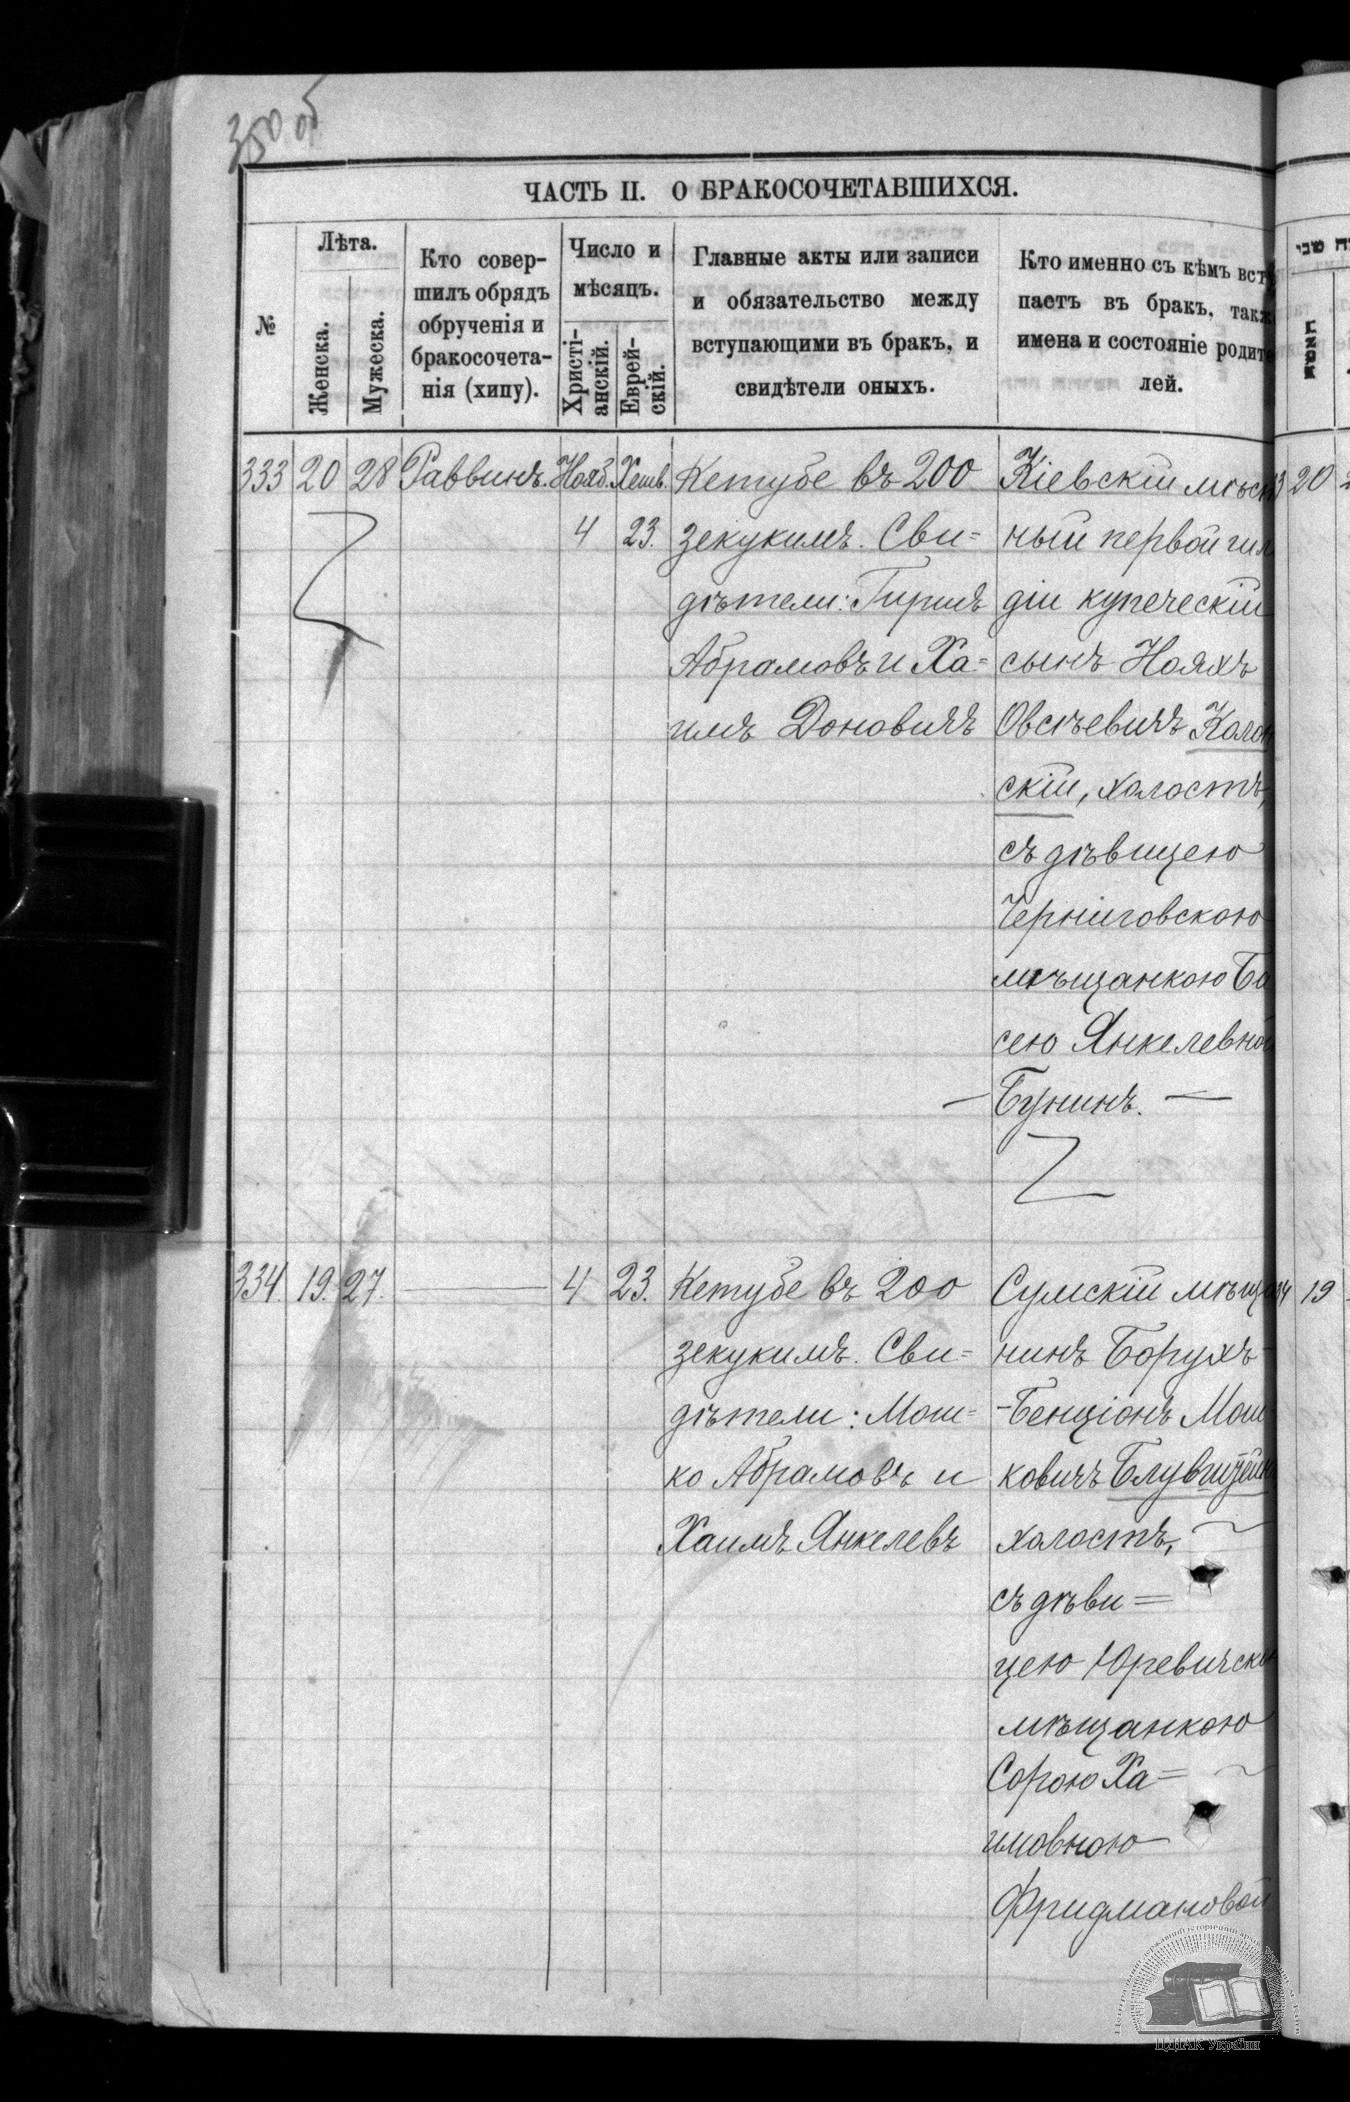 350 об
ЧАСТЬ II. О БРАКОСОЧЕТАВШИХСЯ.
№
Лѣта.
Женска.
Мужеска.
Кто совер-
шилъ обрядъ
обрученія и
бракосочета-
нія (хипу).
Число и
мѣсяцъ.
Христі-
анскій.
Еврей-
скій.
Главные акты или записи
и обязательство между
вступающими въ бракъ, и
свидѣтели оныхъ.
Кто именно съ кѣмъ всту
паетъ въ бракъ, такж
имена и состояніе родите
лей.
333 20 28 Раввинъ. Нояб. Хешв.
4 23.
Кетубе въ 200
зекукимъ. Сви=
дѣтели: Гиршъ
Абрамовъ и Ха=
имъ Доновичъ
Кіевскій мѣст
ный первой гил
діи купеческій
сынъ Нояхъ
Овсѣевичъ Колон
скій, холостъ,
съ дѣвицею
Черниговскою
мѣщанкою Ба
сею Янкелевной
— Бунинъ. —
334. 19. 27. — 4 23.
Кетубе въ 200
зекукимъ. Сви=
дѣтели: Мош=
ко Абрамовъ и
Хаимъ Янкелевъ
Сумскій мѣща
нинъ Борухъ-
-Бенціонъ Мош
ковичъ Блувштейн
холостъ,
съ дѣви=
цею Юревичско
мѣщанкою
Сорою Ха=
имовною
Фридмановой
20
19
ЦДІАК України